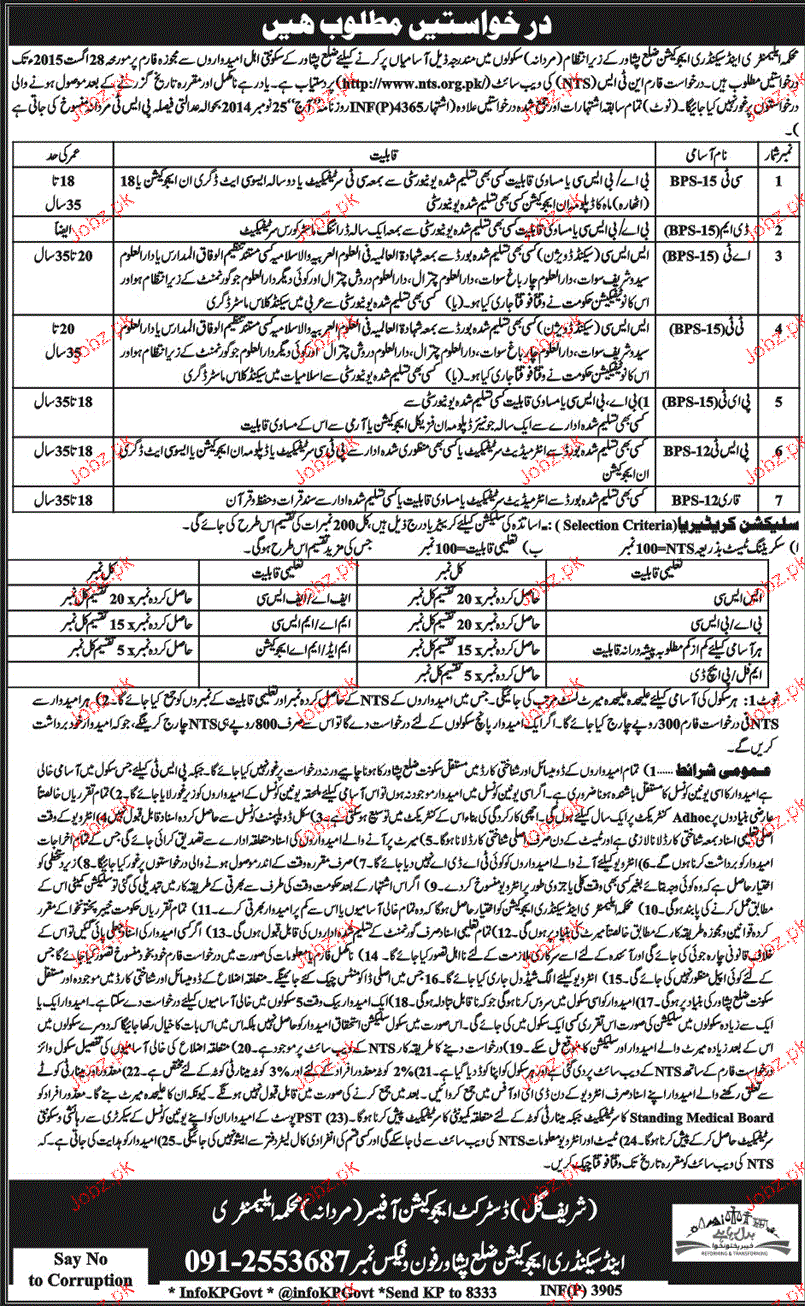 درخواستیں مطلوب ہیں
محکمہ ایلیمنٹری اینڈ سیکنڈری ایجوکیشن ضلع پشاور کے زیر انتظام (مردانہ) سکولوں میں مندرجہ ذیل آسامیاں پر کرنے کیلئے ضلع پشاور کے سکونتی اہل امیدواروں سے مجوزہ فارم پر مورخہ 28 اگست 2015ء تک
درخواستیں مطلوب ہیں۔ درخواست فارم این ٹی ایس (NTS) کی ویب سائٹ (http://www.nts.org.pk/) پر دستیاب ہے۔ یاد رہے نامکمل اور مقررہ تاریخ گزرنے کے بعد موصول ہونے والی
درخواستوں پر غور نہیں کیا جائیگا۔ (نوٹ) تمام سابقہ اشتہارات اور جمع شدہ درخواستیں علاوہ (اشتہار INF(P)4365 روزنامہ "آج" 25 نومبر 2014 بحوالہ عدالتی فیصلہ پی ایس ٹی مردانہ منسوخ کی جاتی ہے
۔(
نمبر شمار نام آسامی قابلیت عمر کی حد
1 سی ٹی BPS-15 بی اے/بی ایس سی یا مساوی قابلیت کسی بھی تسلیم شدہ یونیورسٹی سے بمعہ سی ٹی سرٹیفکیٹ یا دو سالہ ایسوسی ایٹ ڈگری ان ایجوکیشن یا 18 18 تا
(اٹھارہ) ماہ کا ڈپلومہ ان ایجوکیشن کسی بھی تسلیم شدہ یونیورسٹی 35 سال
2 ڈی ایم (BPS-15) بی اے/بی ایس سی یا مساوی قابلیت کسی بھی تسلیم شدہ یونیورسٹی سے بمعہ ایک سالہ ڈرائنگ ماسٹر کورس سرٹیفکیٹ ایضاً
3 اے ٹی (BPS-15) ایس ایس سی (سیکنڈ ڈویژن) کسی بھی تسلیم شدہ بورڈ سے بمعہ شہادۃ العالمیہ فی العلوم العربیہ والاسلامیہ کسی مستند تنظیم الوفاق المدارس یا دارالعلوم 20 تا 35 سال
سیدو شریف سوات، دارالعلوم چار باغ سوات، دارالعلوم چترال، دارالعلوم دروش چترال اور کوئی دیگر دارالعلوم جو گورنمنٹ کے زیر انتظام ہو اور
اس کا نوٹیفکیشن حکومت نے وقتاً فوقتاً جاری کیا ہو۔ (یا) کسی بھی تسلیم شدہ یونیورسٹی سے عربی میں سیکنڈ کلاس ماسٹر ڈگری
4 ٹی ٹی (BPS-15) ایس ایس سی (سیکنڈ ڈویژن) کسی بھی تسلیم شدہ بورڈ سے بمعہ شہادۃ العالمیہ فی العلوم العربیہ والاسلامیہ کسی مستند تنظیم الوفاق المدارس یا دارالعلوم 20 تا
سیدو شریف سوات، دارالعلوم چار باغ سوات، دارالعلوم چترال، دارالعلوم دروش چترال اور کوئی دیگر دارالعلوم جو گورنمنٹ کے زیر انتظام ہو اور 35 سال
اس کا نوٹیفکیشن حکومت نے وقتاً فوقتاً جاری کیا ہو۔ (یا) کسی بھی تسلیم شدہ یونیورسٹی سے اسلامیات میں سیکنڈ کلاس ماسٹر ڈگری
5 پی ای ٹی (BPS-15) 1) بی اے، بی ایس سی یا مساوی قابلیت کسی تسلیم شدہ یونیورسٹی سے 18 تا 35 سال
کسی بھی تسلیم شدہ ادارے سے ایک سالہ جونیئر ڈپلومہ ان فزیکل ایجوکیشن یا آرمی سے اس کے مساوی قابلیت
6 پی ایس ٹی BPS-12 کسی بھی تسلیم شدہ بورڈ سے انٹرمیڈیٹ سرٹیفکیٹ یا کسی بھی منظوری شدہ ادارے سے پی ٹی سی سرٹیفکیٹ یا ڈپلومہ ان ایجوکیشن یا ایسوسی ایٹ ڈگری 18 تا 35 سال
ان ایجوکیشن
7 قاری BPS-12 کسی بھی تسلیم شدہ بورڈ سے انٹرمیڈیٹ سرٹیفکیٹ یا مساوی قابلیت یا کسی تسلیم شدہ ادارے سے سند قرات و حفظ و قرآن 18 تا 35 سال
سلیکشن کریٹیریا (Selection Criteria):۔ اساتذہ کی سلیکشن کیلئے کریٹیریا درج ذیل ہیں، کل 200 نمبرات کی تقسیم اس طرح کی جائے گی۔
ا) سکریننگ ٹیسٹ بذریعہ NTS=100 نمبر ب) تعلیمی قابلیت=100 نمبر جس کی مزید تقسیم اس طرح ہوگی۔
تعلیمی قابلیت کل نمبر تعلیمی قابلیت کل نمبر
ایس ایس سی حاصل کردہ نمبر x 20 تقسیم کل نمبر ایف اے/ایف ایس سی حاصل کردہ نمبر x 20 تقسیم کل نمبر
بی اے/بی ایس سی حاصل کردہ نمبر x 20 تقسیم کل نمبر ایم اے/ایم ایس سی حاصل کردہ نمبر x 15 تقسیم کل نمبر
ہر آسامی کیلئے کم از کم مطلوبہ پیشہ ورانہ قابلیت حاصل کردہ نمبر x 15 تقسیم کل نمبر ایم ایڈ/ایم اے ایجوکیشن حاصل کردہ نمبر x 5 تقسیم کل نمبر
ایم فل/پی ایچ ڈی حاصل کردہ نمبر x 5 تقسیم کل نمبر
نوٹ 1: ہر سکول کی آسامی کیلئے علیحدہ علیحدہ میرٹ لسٹ مرتب کی جائیگی۔ جس میں امیدواروں کے NTS کے حاصل کردہ نمبر اور تعلیمی قابلیت کے نمبروں کو جمع کیا جائے گا۔ 2) ہر امیدوار سے
NTS فی درخواست فارم 300 روپے چارج کیا جائے گا۔ اگر ایک امیدوار پانچ سکولوں کے لئے درخواست دے گا تو اس سے صرف 800 روپے ہی NTS چارج کرینگے، جو کہ امیدوار خود برداشت
کریں گے۔
عمومی شرائط ..... 1) تمام امیدواروں کے ڈومیسائل اور شناختی کارڈ میں مستقل سکونت ضلع پشاور کا ہونا چاہیے ورنہ درخواست پر غور نہیں کیا جائے گا۔ جبکہ پی ایس ٹی کیلئے جس سکول میں آسامی خالی
ہے امیدوار کا اسی یونین کونسل کا مستقل باشندہ ہونا ضروری ہے۔ اگر اسی یونین کونسل میں امیدوار موجود نہ ہوں تو اس آسامی کیلئے ملحقہ یونین کونسل کے امیدواروں کو زیر غور لایا جائے گا۔ 2) تمام تقرریاں خالصتاً
عارضی بنیادوں پر Adhoc کنٹریکٹ پر ایک سال کیلئے ہوں گی۔ اچھی کارکردگی کی بناء اس کے کنٹریکٹ میں توسیع ہو سکتی ہے۔ 3) سکل ڈویلپمنٹ کونسل سے حاصل کردہ اسناد قابل قبول نہیں۔ 4) انٹرویو کے وقت
اصلی تعلیمی اسناد بمعہ شناختی کارڈ لانا لازمی ہے اور ٹیسٹ کے دن صرف اصلی شناختی کارڈ لانا ہوگا۔ 5) میرٹ پر آنے والے امیدواروں کی اسناد متعلقہ ادارے سے تصدیق کرائی جائے گی جس کے تمام اخراجات
امیدوار کو برداشت کرنا ہوں گے۔ 6) انٹرویو کیلئے آنے والے امیدواروں کو کوئی ٹی اے ڈی اے نہیں دیا جائے گا۔ 7) صرف مقررہ وقت کے اندر موصول ہونے والی درخواستوں پر غور کیا جائیگا۔ 8) زیر دستخطی کو
اختیار حاصل ہے کہ وہ کوئی وجہ بتائے بغیر کسی بھی وقت کلی یا جزوی طور پر انٹرویو منسوخ کر دے۔ 9) اگر اس اشتہار کے بعد حکومت وقت کی طرف سے بھرتی کے طریقہ کار میں تبدیلی کی گئی تو سلیکشن کمیٹی اس کے
مطابق عمل کرنے کی پابند ہو گی۔ 10) محکمہ ایلیمنٹری اینڈ سیکنڈری ایجوکیشن کو اختیار حاصل ہو گا کہ وہ تمام خالی آسامیوں یا اس سے کم پر امیدوار بھرتی کرے۔ 11) تمام تقرریاں حکومت خیبر پختونخوا کے مقرر
کردہ قوانین و مجوزہ طریقہ کار کے مطابق خالصتاً میرٹ کی بنیاد پر ہوں گی۔ 12) تمام تعلیمی اسناد صرف گورنمنٹ کے تسلیم شدہ اداروں کی قابل قبول ہوں گی۔ 13) اگر کسی امیدوار کی اسناد جعلی پائی گئیں تو اس کے
خلاف قانونی چارہ جوئی کی جائے گی اور آئندہ کے لئے اسے سرکاری ملازمت کے لئے نا اہل تصور کیا جائے گا۔ 14) نامکمل فارم یا معلومات کی صورت میں درخواست فارم خود بخود منسوخ تصور کیا جائے گا جس
کے لئے کوئی اپیل منظور نہیں کی جائے گی۔ 15) انٹرویو کیلئے الگ شیڈول جاری کیا جائے گا۔ 16) جس میں اصلی ڈاکومنٹس چیک کئے جائینگے۔ متعلقہ اضلاع کے ڈومیسائل اور شناختی کارڈ میں موجودہ اور مستقل
سکونت ضلع پشاور کی بنیاد پر ہو گی۔ 17) امیدوار کو اسی سکول میں سروس کرنا ہوگی جو کہ نا قابل تبادلہ ہو گی۔ 18) ایک امیدوار بیک وقت 5 سکولوں میں خالی آسامیوں کیلئے درخواست دے سکتا ہے۔ امیدوار ایک یا
ایک سے زیادہ سکولوں میں سلیکشن کی صورت اس تقرری کسی ایک سکول میں کی جائے گی۔ اس صورت میں سکول سلیکشن استحقاق امیدوار کو حاصل نہیں بلکہ اس میں اس بات کا خیال رکھا جائیگا کہ دوسرے سکولوں میں
اس کے بعد زیادہ میرٹ والے امیدوار اور سلیکشن کا موقع مل سکے۔ 19) درخواست دینے کا طریقہ کار NTS کے ویب سائٹ پر موجود ہے۔ 20) متعلقہ اضلاع کی خالی آسامیوں کی تفصیل سکول وائز
درخواست فارم کے ساتھ NTS کے ویب سائٹ پر دی گئی ہے اور ہر سکول کو اپنا کوڈ دیا گیا ہے۔ 21) 2% کوٹہ معذور افراد کے لئے اور 3% کوٹہ مینارٹی کوٹہ کے لئے مختص ہے۔ 22) معذور اور مینارٹی کوٹے
سے تعلق رکھنے والے امیدوار اپنے اسناد صرف انٹرویو کے دن ڈی ای او آفس میں جمع کروائیں۔ بعد میں جمع کرنے کی صورت میں قابل قبول نہیں ہونگے۔ کیونکہ ان کا علیحدہ میرٹ بنے گا۔ معذور افراد کو
Standing Medical Board کا سرٹیفکیٹ جبکہ مینارٹی کوٹہ کے لئے متعلقہ کمیونٹی کا سرٹیفکیٹ پیش کرنا ہو گا۔ 23) PST پوسٹ کے امیدواران کو اپنے یونین کونسل کے سیکرٹری سے رہائشی و سکونتی
سرٹیفکیٹ حاصل کر کے پیش کرنا ہو گا۔ 24) ٹیسٹ اور انٹرویو معلومات NTS کی ویب سائٹ سے لی جا سکے گی اور کسی قسم کی انفرادی کال لیٹر دفتر سے ایشو نہیں کی جائیگی۔ 25) امیدوار کو ہدایت کی جاتی ہے کہ
NTS کی ویب سائٹ کو مقررہ تاریخ تک وقتاً فوقتاً چیک کریں۔
(شریف گل) ڈسٹرکٹ ایجوکیشن آفیسر (مردانہ) محکمہ ایلیمنٹری
اینڈ سیکنڈری ایجوکیشن ضلع پشاور فون و فیکس نمبر 091-2553687
Say No
to Corruption
خیبر پختونخوا
REFORMING & TRANSFORMING
* InfoKPGovt * @infoKPGovt *Send KP to 8333
INF(P) 3905
Jobz.pk